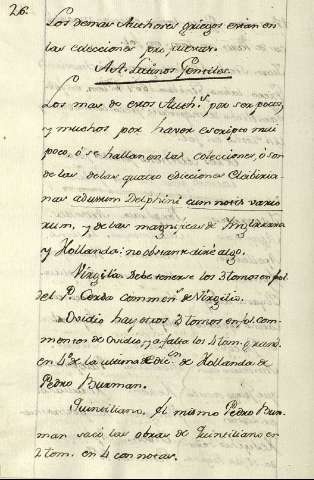 26.
Los demas Authores griegos estan en
las colecciones
A.A. Latinos Gentiles.
Los mas de estos Auth.s por ser pocos,
y muchos por haver escripto mui
poco, ó se hallan en las colecciones, ó son
de las de las quatro ediciones
nas ad usum Delphini cum notis vario
rum, y de las magnificas de Inglaterra
y Hollanda: no obstante diré algo.
Virgilio. Debe tenerse los 3 tomos en fol.
del P. Cerda comment.s de Virgilio.
Ovidio hay otros 3 tomos en fol. con
mentos de Ovidio, y a falta los 4 tom.
en 4.º de la ultima edic.on de Hollanda de
Pedro Burman.
Quinctiliano. El mismo Pedro Bur
man sacó las obras de Quinctiliano en
2 tom. en 4 con notas.